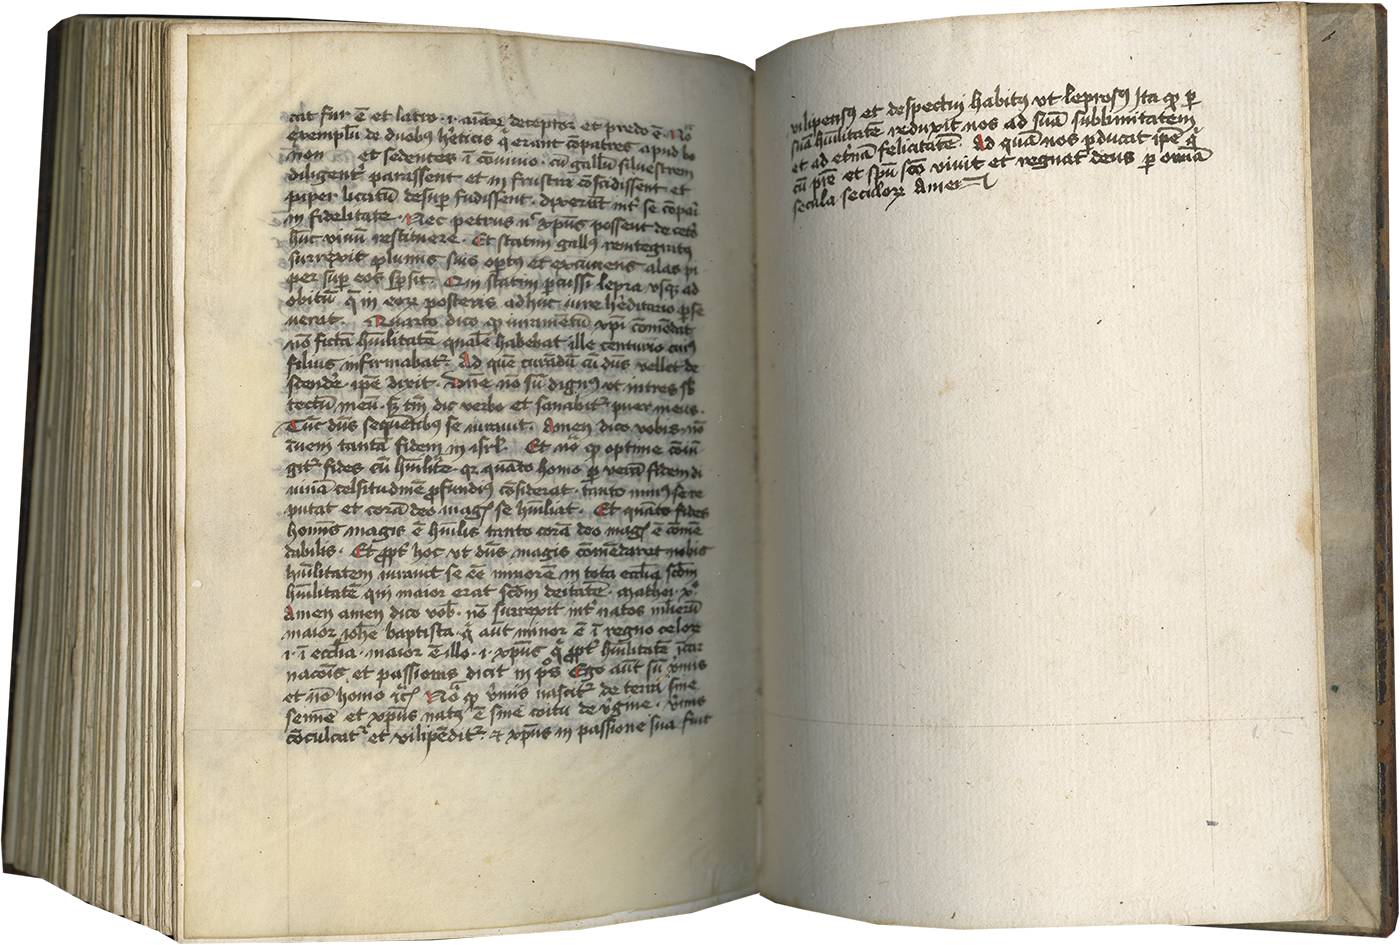 cat fur ē et latro · i · aīarꝫ deceptor et predo ē · Nā
exemplū de duobꝰ hēticis q̄ erant cōpatres apud bo
non et sedentes ī conuiuio · cū gallū siluestrem
diligent̄ parassent et in frustra cōscidissent et
piper liquatū desup fudissent · dixerūt int̄ se
in fidelitate · Nec petrus nc̄ xp̄us possent de cet̄o
hūc viuū restituere · Et statim gallꝰ reintegratꝰ
surrexit plumis suis optꝰ et excutiens alas pi
per sup eos spsit · Qui statim pcussi lepra vsqꝫ ad
obitū q̄ in eorꝫ posteris adhuc iure hēditario pse
uerat · Quarto dico qꝫ iuramētū xp̄i cōmēdat
nō fictā hūilitatē qualē habebat ille centurio cuiꝰ
filius infirmabat̄ · Ad quē curādū cū dn̄s vellet de
scendē · ip̄e dixit · Dn̄e nō sū dignꝰ vt intres sb̄
tectū meū · sꝫ tm̄ dic verbo et sanabit̄ puer meus ·
Tūc dn̄s sequētibꝰ se iurauit · Amen dico vobis · nō
īueni tantā fidem in isrl · Et nō qꝫ optime cōiū
git̄ fides cū hūilit̄e · qꝛ quāto homo p verā fidem di
uinā celsitudinē pfundiꝰ cōsiderat · tanto minꝰ se re
putat et corā deo magꝭ se hūiliat · Et quāto fides
hominis magis ē hūilis tanto corā deo magꝭ ē cōmē
dabilis · Et ppt̄ hoc vt dn̄s magis cōmēdaret nobis
hūilitatem iurauit se eē minorē in tota eccl̄ia scd̄m
hūilitatē qui maior erat scd̄m deitatē · Mathei · xº ·
Amen amen dico vob̄ · nō surrexit int̄ natos mlierū
maior ioh̄e baptista · q̄ aūt minor ē ī regno celorꝫ
· i · ī eccl̄ia · maior ē illo · i · xp̄us q̄ ppt̄ hūilitatē īcar
nacōis et passionis dicit in ps̄ Ego aūt sū v̄mis
et nō homo ꝛcꝭ Nō qꝫ v̄mis nascit̄ de terra sine
semine et xp̄us natꝰ ē sine coitu de v̄gine · v̄mis
cōculcat̄ et vilipēdit̄ · et xp̄us in passione sua fuit
vilipensꝰ et despectui habitꝰ vt leprosꝰ Ita qꝫ p
suā hūilitatē reduxit nos ad suā sublimitatem
et ad et̄nā felicitatē · Ad quā nos pducat ip̄e q̄
cū pr̄e et sp̄u sc̄o viuit et regnat deus p omīa
secula seculorꝫ Amen